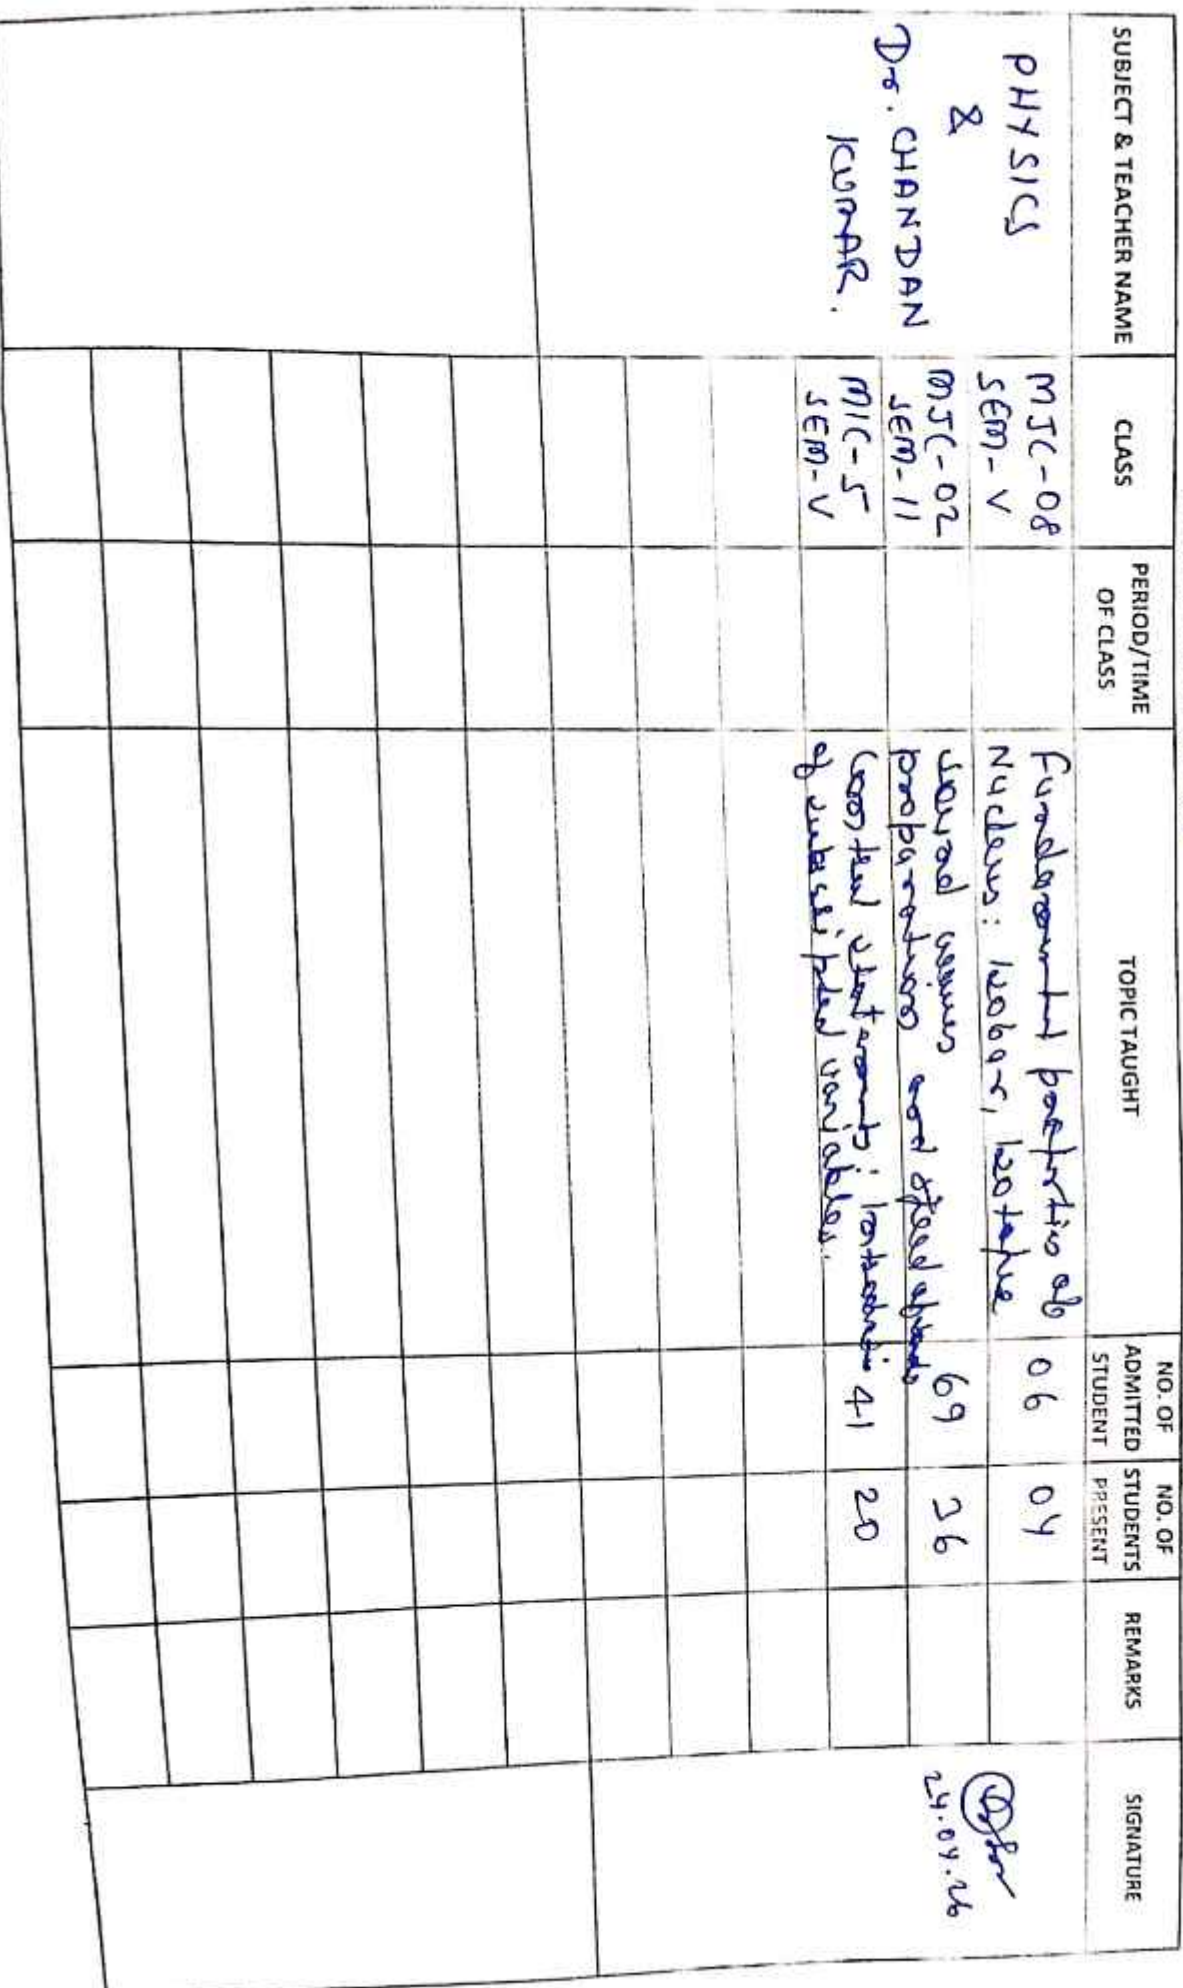 SUBJECT & TEACHER NAME
CLASS
PERIOD/TIME
OF CLASS
TOPIC TAUGHT
NO. OF
ADMITTED
STUDENT
NO. OF
STUDENTS
PRESENT
REMARKS
SIGNATURE
PHYSICS
&
Dr. CHANDAN
KUMAR.
MJC-08
SEM-V
Fundamental properties of
Nucleus: Isobar, Isotope
06
04
MJC-02
SEM-II
sound waves
proparation and speed of
69
36
MIC-5
SEM-V
Control statements: 
of subscripted variables.
41
20
24.04.26